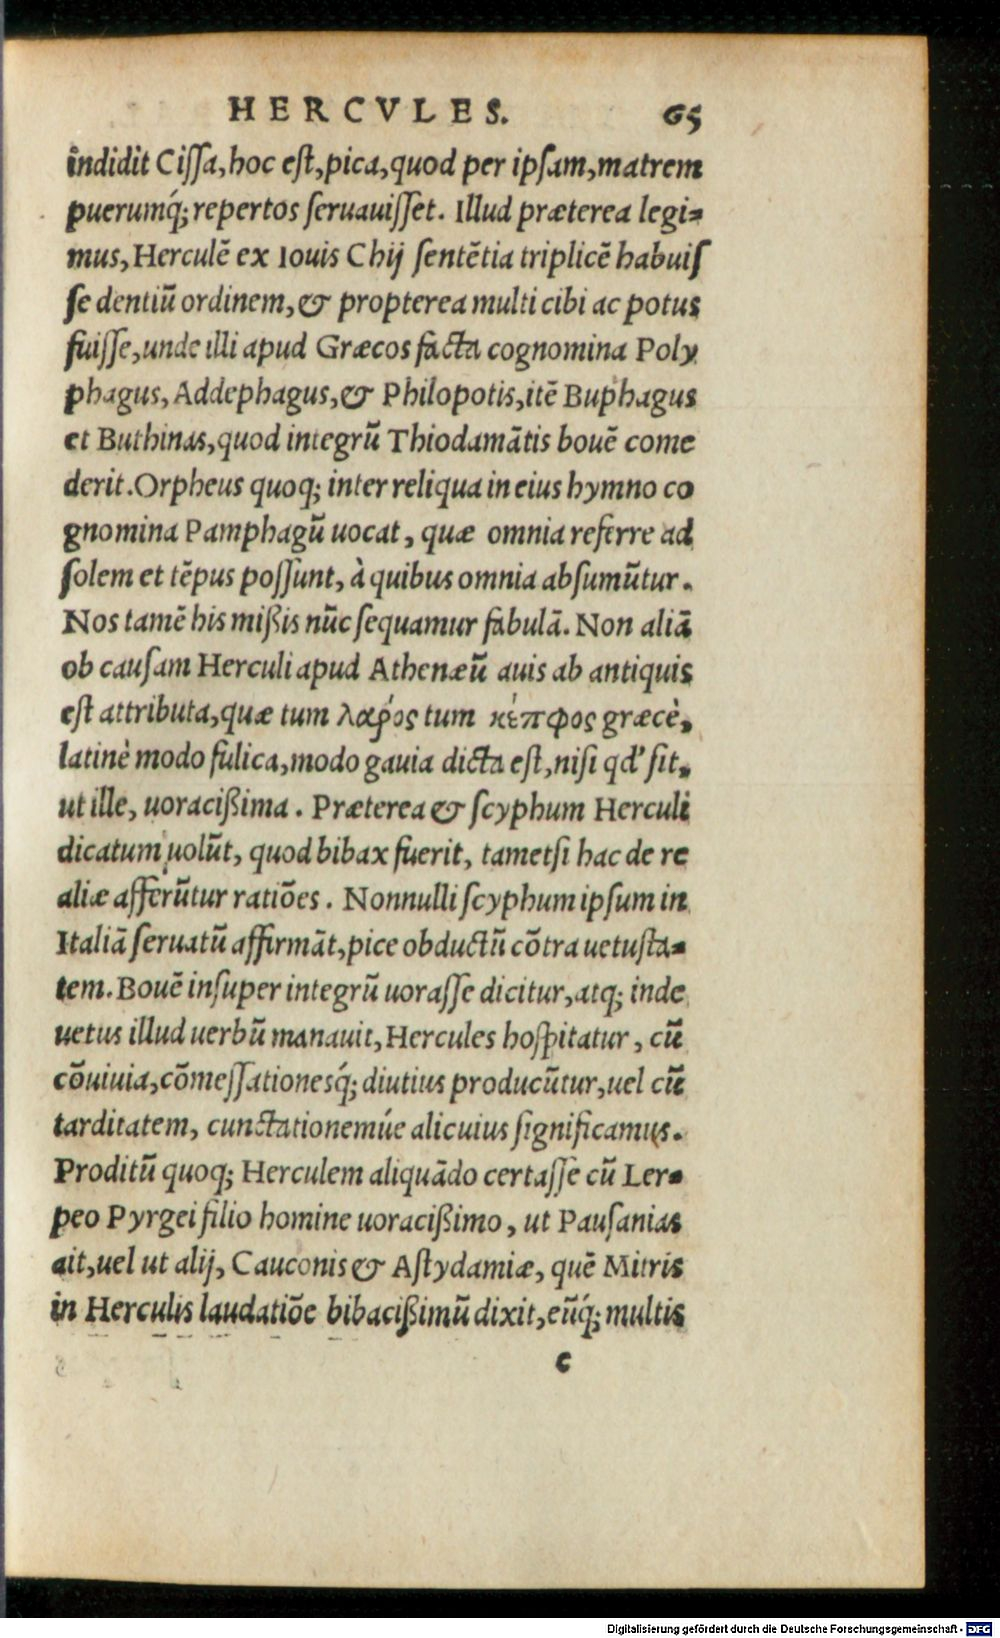 HERCVLES. 65
indidit Cissa, hoc est, pica, quod per ipsam, matrem
puerumq́; repertos seruauisset. Illud præterea legi=
mus, Herculē ex Iouis Chij sentētia triplicē habuis
se dentiū ordinem, & propterea multi cibi ac potus
fuisse, unde illi apud Græcos facta cognomina Poly
phagus, Addephagus, & Philopotis, itē Buphagus
et Buthinas, quod integrū Thiodamātis bouē come
derit. Orpheus quoq; inter reliqua in eius hymno co
gnomina Pamphagū uocat, quæ omnia referre ad
solem et tēpus possunt, à quibus omnia absumūtur.
Nos tamē his mißis nūc sequamur fabulā. Non aliā
ob causam Herculi apud Athenæū auis ab antiquis
est attributa, quæ tum λαρός tum κέπφος græcè,
latinè modo fulica, modo gauia dicta est, nisi qd' sit,
ut ille, uoracißima. Præterea & scyphum Herculi
dicatum uolūt, quod bibax fuerit, tametsi hac de re
aliæ afferūtur ratiōes. Nonnulli scyphum ipsum in
Italiā seruatū affirmāt, pice obductū cōtra uetusta=
tem. Bouē insuper integrū uorasse dicitur, atq; inde
uetus illud uerbū manauit, Hercules hospitatur, cū
cōuiuia, cōmessationesq́; diutius producūtur, uel cū
tarditatem, cunctationemúe alicuius significamus.
Proditū quoq; Herculem aliquādo certasse cū Ler=
peo Pyrgei filio homine uoracißimo, ut Pausanias
ait, uel ut alij, Cauconis & Astydamiæ, quē Mitris
in Herculis laudatiōe bibacißimū dixit, eūq́; multis
c
Digitalisierung gefördert durch die Deutsche Forschungsgemeinschaft - DFG